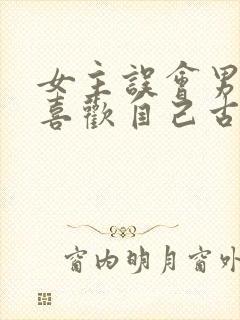 女主誤會男
喜歡自己古
窗内明月窗外